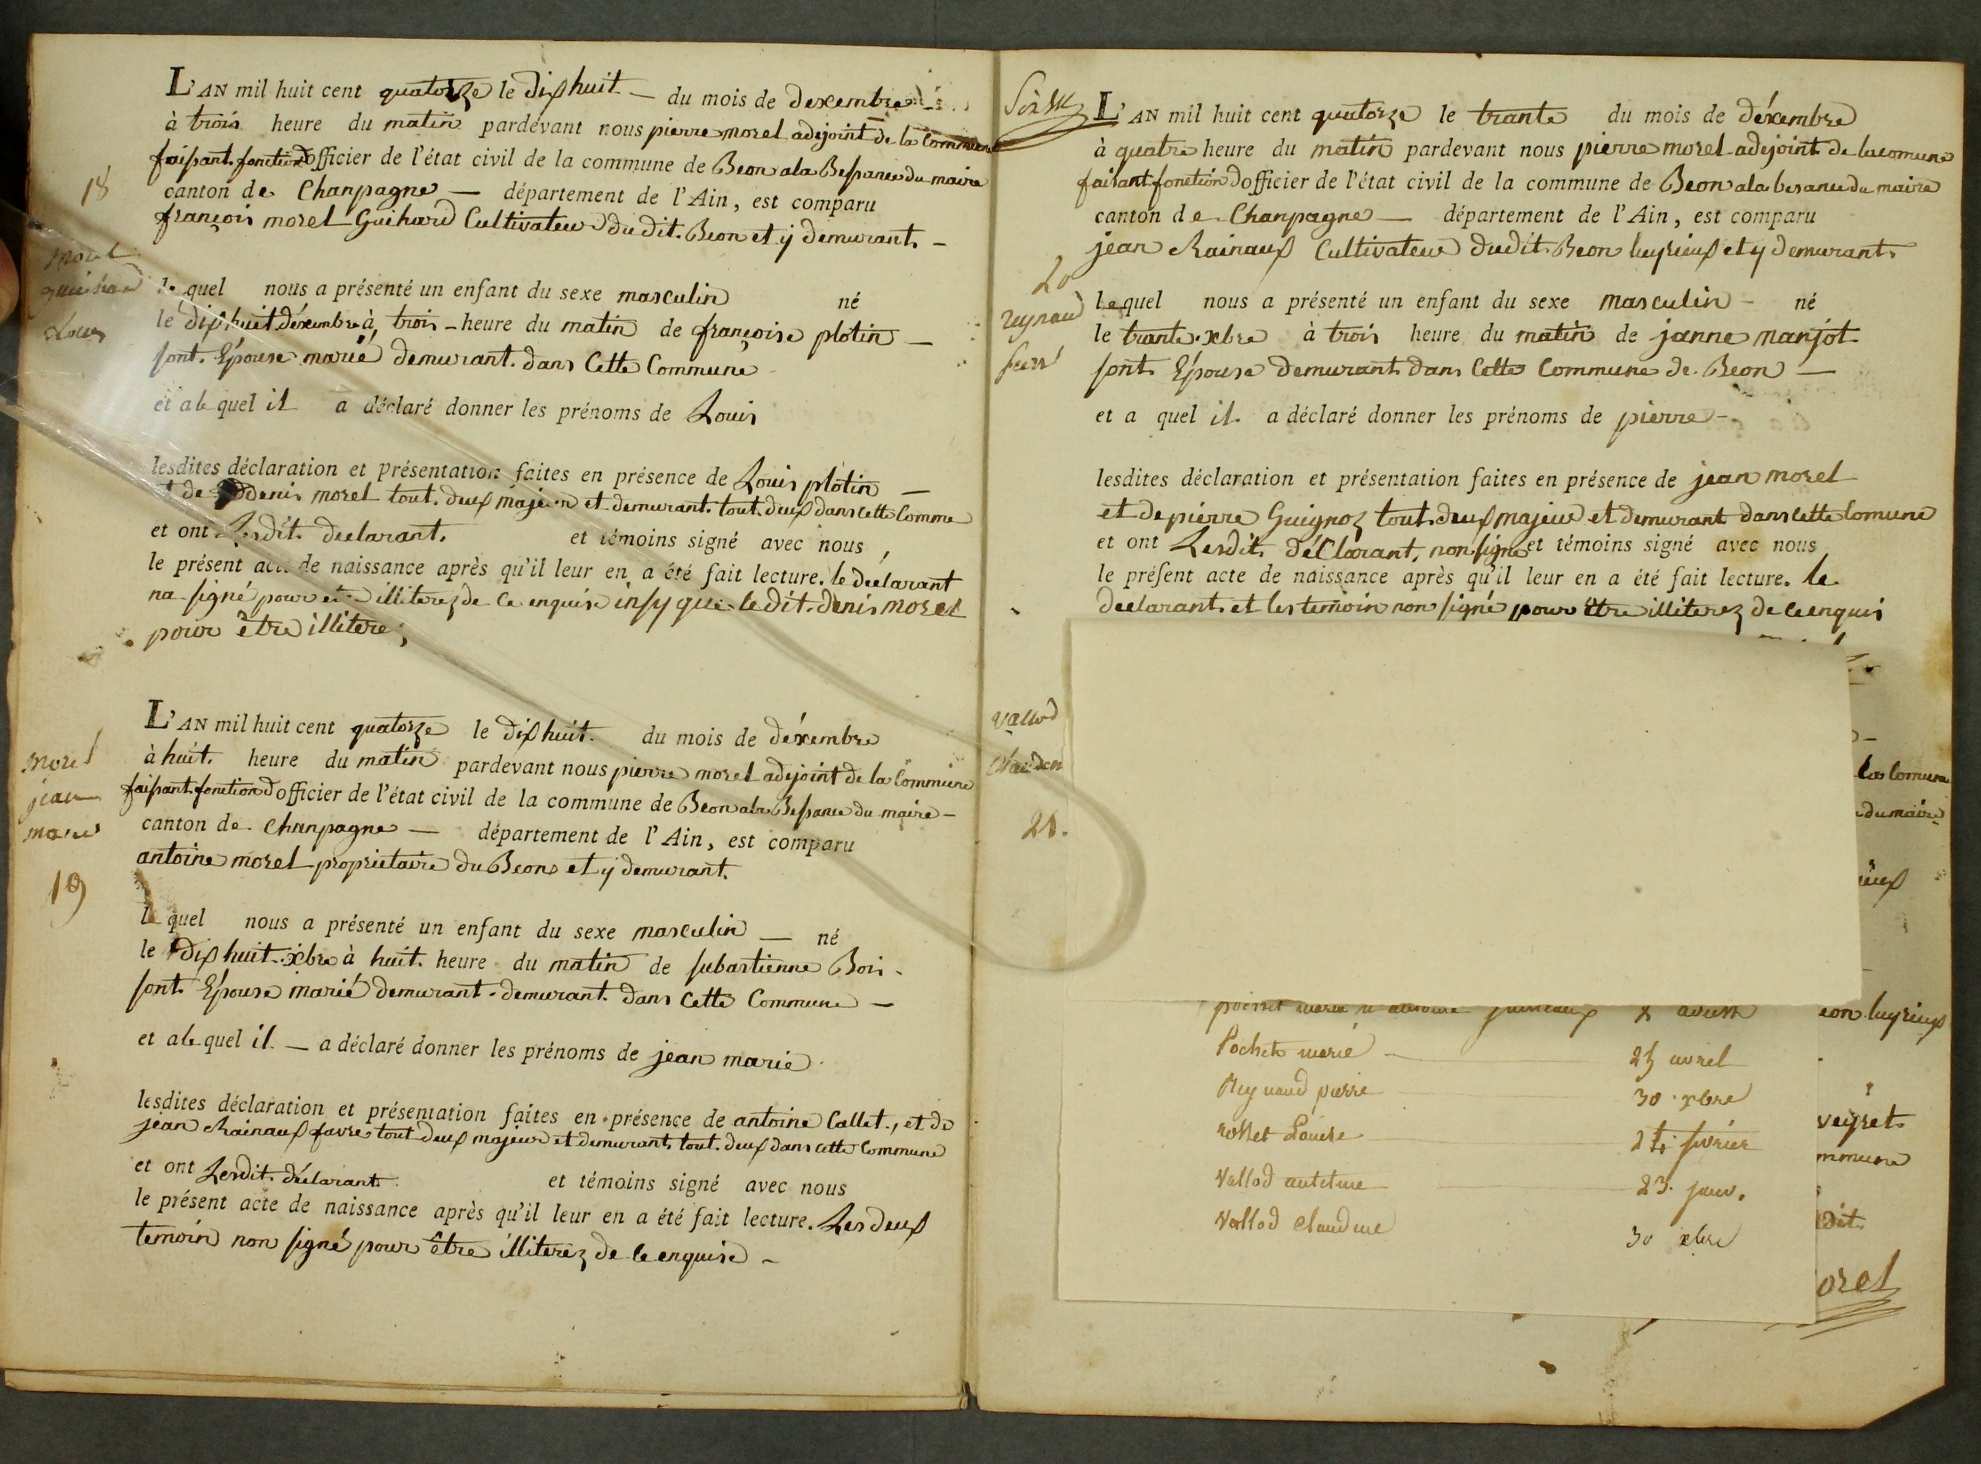 L'AN mil huit cent quatorze le dix huit du mois de dexembre
à trois heure du matin pardevant nous pierre morel adejoint de la Commune
faisant fonction d'officier de l'état civil de la commune de Beon a la Besance du maire
canton de Chanpagne département de l'Ain, est comparu
françois morel Guihard Cultivateur du dit Beon et ÿ demurant
18
morel
guichard
Louis
le quel nous a présenté un enfant du sexe masculin né
le dix huit déxembre à trois heure du matin de françoise plotin
sont Epouse marié demurant dans Cette Commune
et a le quel il a déclaré donner les prénoms de Louis
lesdites déclaration et présentation faites en présence de Louis plotin
et de denis morel tout deux majeur et demurant tout deux dans cette Comme
et ont Lesdit declarant et témoins signé avec nous
le présent acte de naissance après qu'il leur en a été fait lecture. le declarant
na signé pour etre illiterez de ce enquise insy que le dit denis morel
pour être illitere
L'AN mil huit cent quatorze le dix huit du mois de déxembre
à huit heure du matin pardevant nous pierre morel adejoint de la Commune
faisant fonction d'officier de l'état civil de la commune de Beon a la Besance du maire
canton de Chanpagne département de l'Ain, est comparu
antoine morel proprietaire du Beon et ÿ demurant
morel
jean
marie
19
le quel nous a présenté un enfant du sexe masculin né
le dix huit xbre à huit heure du matin de subastienne Bois
sont Epouse marié demurant demurant dans Cette Commune
et a le quel il a déclaré donner les prénoms de jean marie
lesdites déclaration et présentation faites en présence de antoine Callet, et de
jean Rainaux favre tout deux majeur et demurant tout deux dans cette Commune
et ont Lesdit déclarant et témoins signé avec nous
le présent acte de naissance après qu'il leur en a été fait lecture. Les deux
temoin non signé pour être illiterez de ce enquise
L'AN mil huit cent quatorze le trante du mois de déxembre
à quatre heure du matin pardevant nous pierre morel adejoint de la comune
faisant fonction d'officier de l'état civil de la commune de Beon a la besance du maire
canton de Chanpagne département de l'Ain, est comparu
jean Rainaux Cultivateur dudit Beon luyrieux et ÿ demurant
20
reynaud
lequel nous a présenté un enfant du sexe masculin né
le trante xbre à trois heure du matin de janne manjot
sont Epouse demurant dans Cette Commune de Beon
et a quel il a déclaré donner les prénoms de pierre
lesdites déclaration et présentation faites en présence de jean morel
et de pierre Guignoz tout deux majeur et demurant dans cette Comune
et ont Lesdit déClarant, non signe et témoins signé avec nous
le présent acte de naissance après qu'il leur en a été fait lecture. le
declarant et les temoin non signé pour être illiterez de ce enquis
vallod
Claudine
21.
la Comune
du maire
eon luyrieux
Pochet marie 25 avril
Reynaud pierre 30 xbre
rosset Louise 24 fevrier
Vallod antelme 23 janv.
Vallod Claudine 30 xbre
veyret
mmune
dit
orel